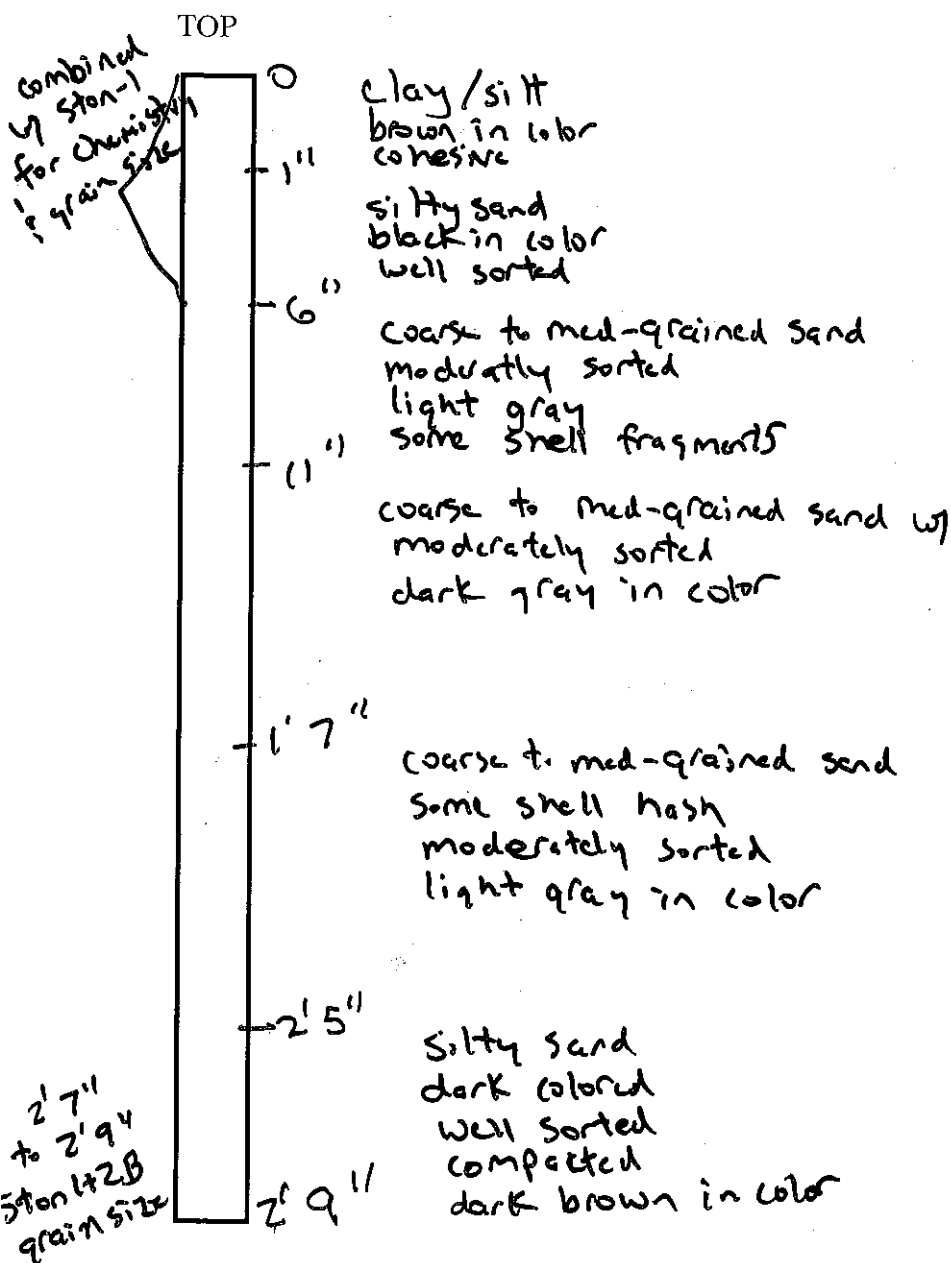 TOP
combined
w/ Ston-1
for chemistry
& grain size
0
clay/silt
brown in color
cohesive
1"
silty sand
black in color
well sorted
6"
coarse to med-grained sand
moderatly sorted
light gray
some shell fragments
11"
coarse to med-grained sand w/
moderately sorted
dark gray in color
1' 7"
coarse to med-grained sand
some shell hash
moderately sorted
light gray in color
2' 5"
silty sand
dark colored
well sorted
compacted
dark brown in color
2' 7"
to 2' 9"
Ston 1+2B
grain size
2' 9"